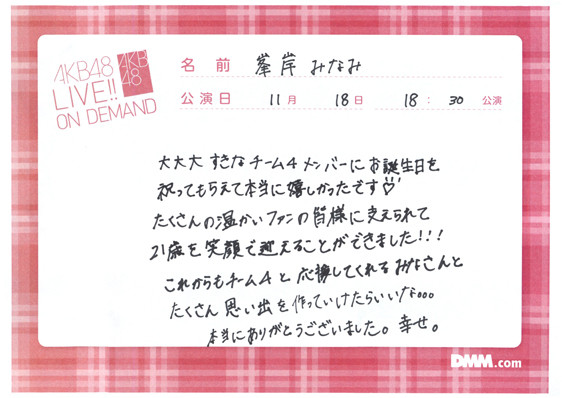 AKB48
LIVE!!
ON DEMAND
AKB
48
名前 峯岸 みなみ
公演日 11月 18日 18:30 公演
大大大 すきなチーム4 メンバーに お誕生日を
祝ってもらえて本当に嬉しかったです♡
たくさんの温かいファンの皆様に支えられて
21歳を笑顔で迎えることができました!!!
これからもチーム4と 応援してくれるみなさんと
たくさん思い出を作っていけたらいいな。。。
本当にありがとうございました。幸せ。
DMM.com